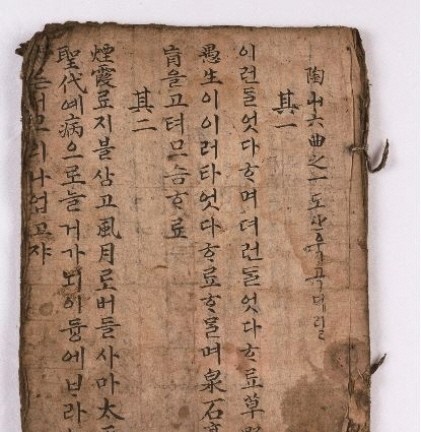 陶山六曲之一 도산육곡디일
其一
이런ᄃᆞᆯ엇다ᄒᆞ며뎌런ᄃᆞᆯ엇다ᄒᆞ료草
愚生이이러타엇다ᄒᆞ료ᄒᆞᄆᆞᆯ며泉石
肓을고텨므슴ᄒᆞ료
其二
煙霞로지블삼고風月로버들사마太
聖代예病으로늘거가뇌이듕에ᄇᆞ라
허므리나업고쟈